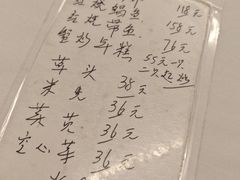 红烧鲳鱼 118元
红烧带鱼 158元
蟹炒年糕 76元
55元一只
二只起炒
草头 38元
米苋 36元
菠菜 36元
空心菜 36元